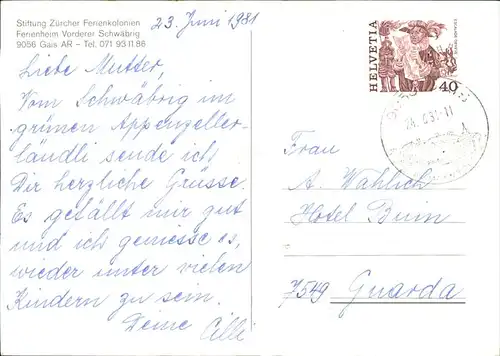 Stiftung Zürcher Ferienkolonien
Ferienheim Vorderer Schwäbrig
9056 Gais AR – Tel. 071 93 11 86
23. Juni 1981
Liebe Mutter,
Vom Schwäbrig im
grünen Appenzeller-
ländli sende ich
Dir herzliche Grüsse.
Es gefällt mir gut
und ich geniesse es,
wieder unter vielen
Kindern zu sein.
Deine Cilli
HELVETIA
40
Frau
A. Wahlich
Hotel
7549 Guarda